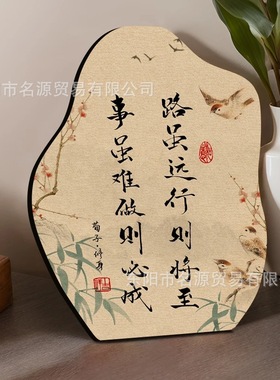 路虽远行则将至
事虽难做则必成
荀子·修身
市名源贸易有限公司
阳市名源贸易有限公司